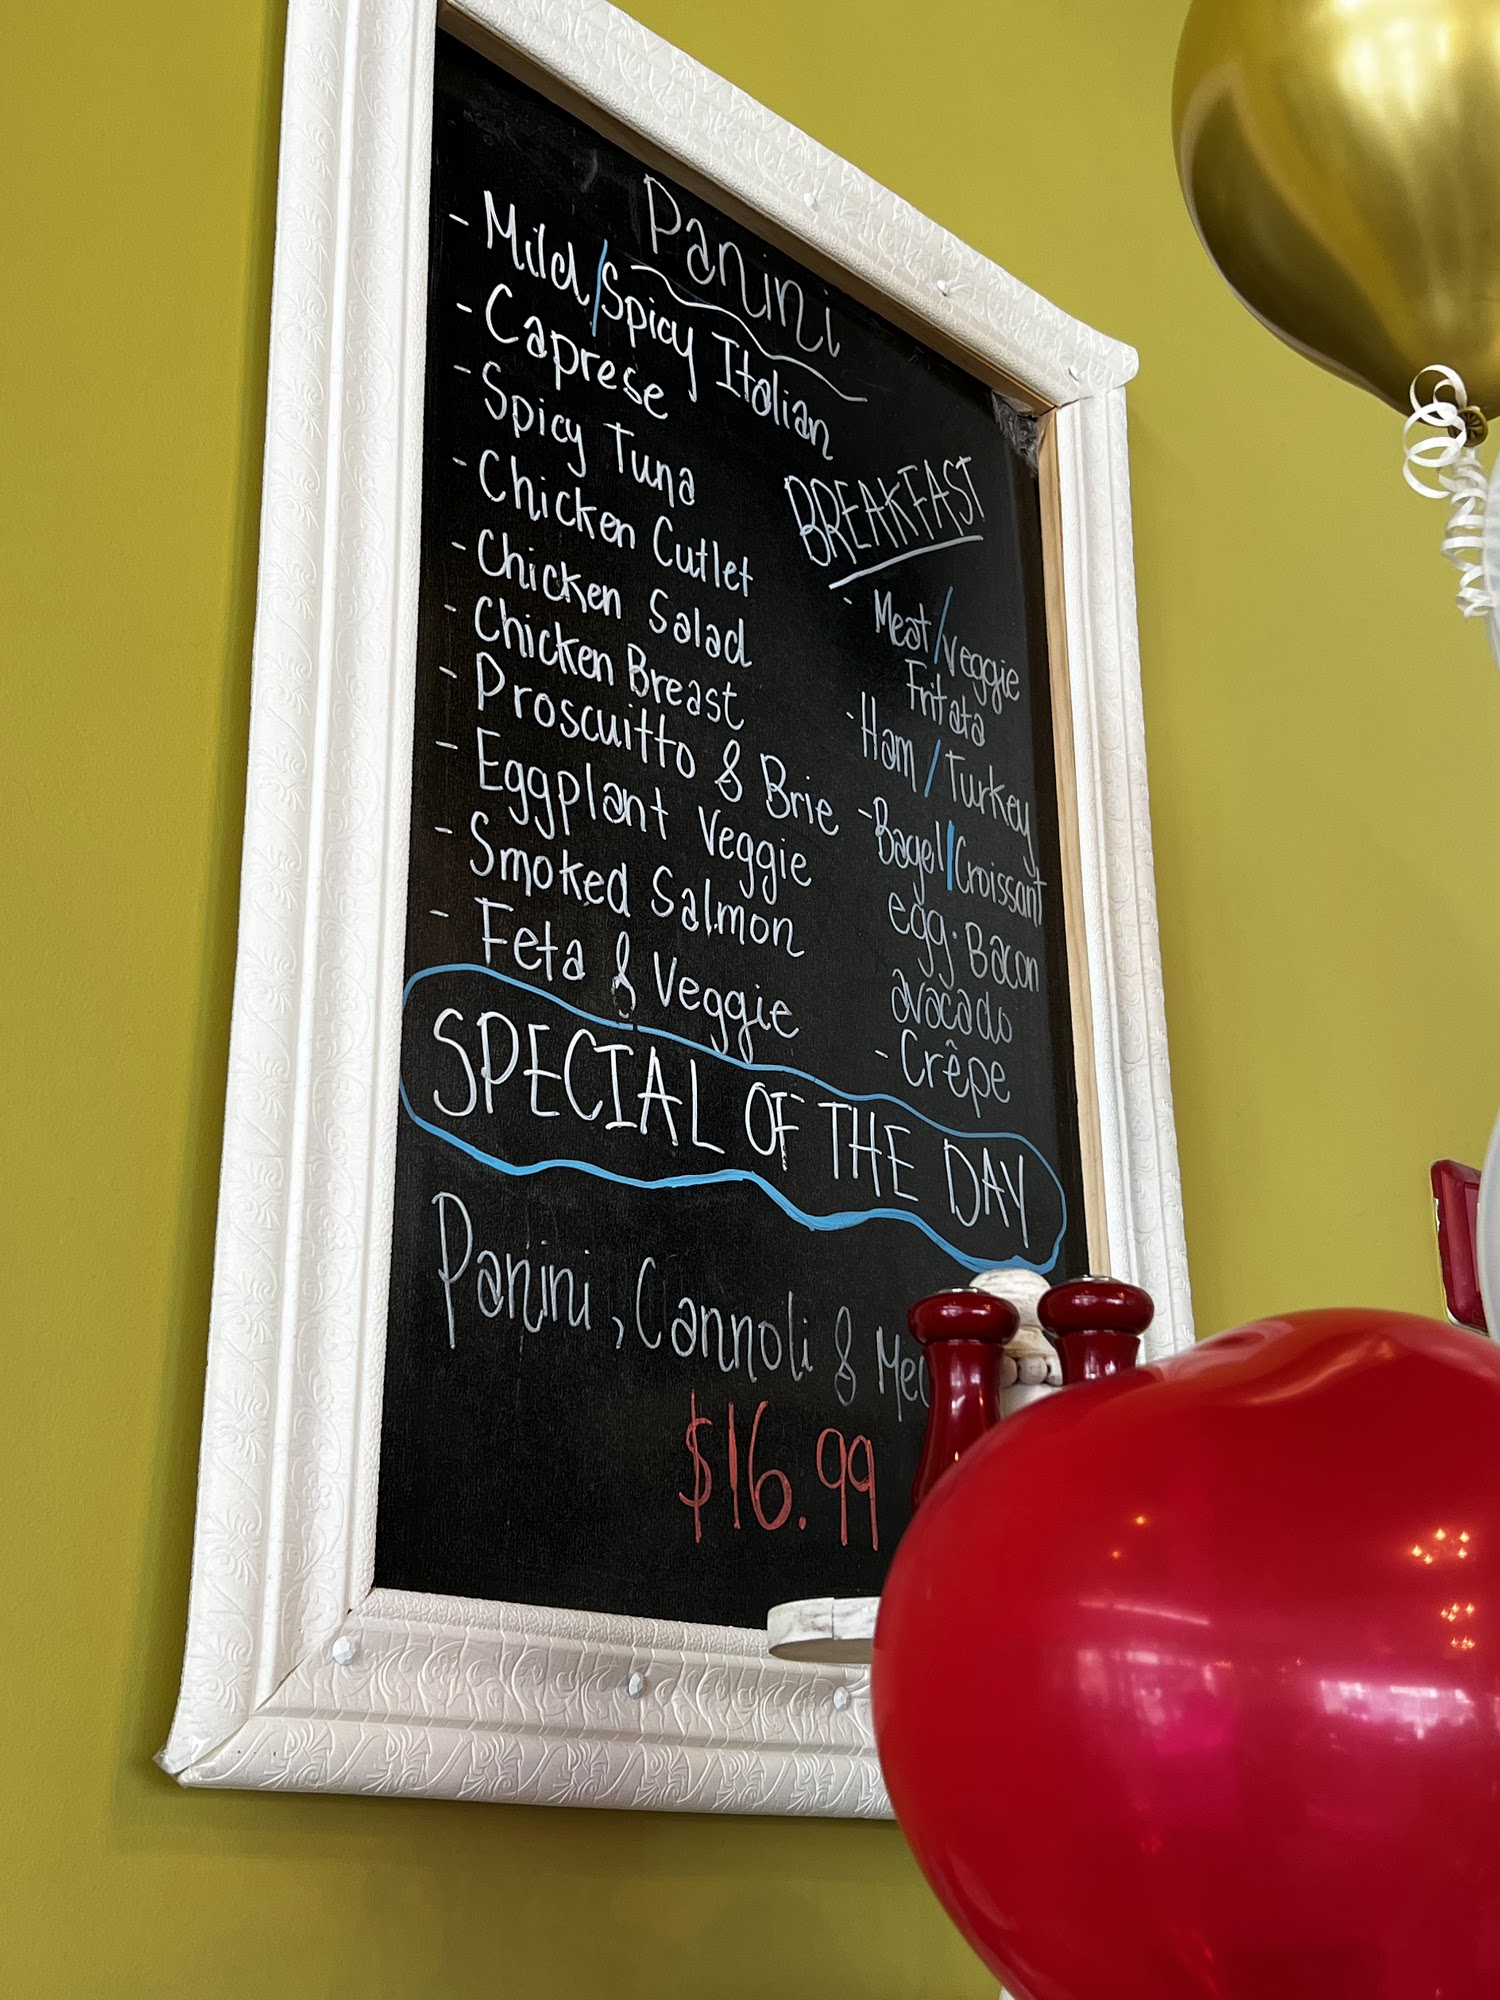 Panini
- Mild/Spicy Italian
- Caprese
- Spicy Tuna
- Chicken Cutlet
- Chicken Salad
- Chicken Breast
- Proscuitto & Brie
- Eggplant Veggie
- Smoked Salmon
- Feta & Veggie
BREAKFAST
- Meat/veggie
Fritata
- Ham / Turkey
- Bagel/Croissant
egg. Bacon
avacado
- Crêpe
SPECIAL OF THE DAY
Panini, Cannoli &
$16.99